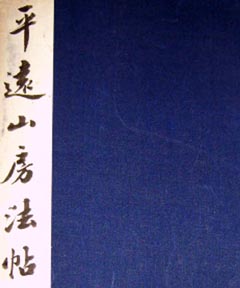 平遠山房法帖